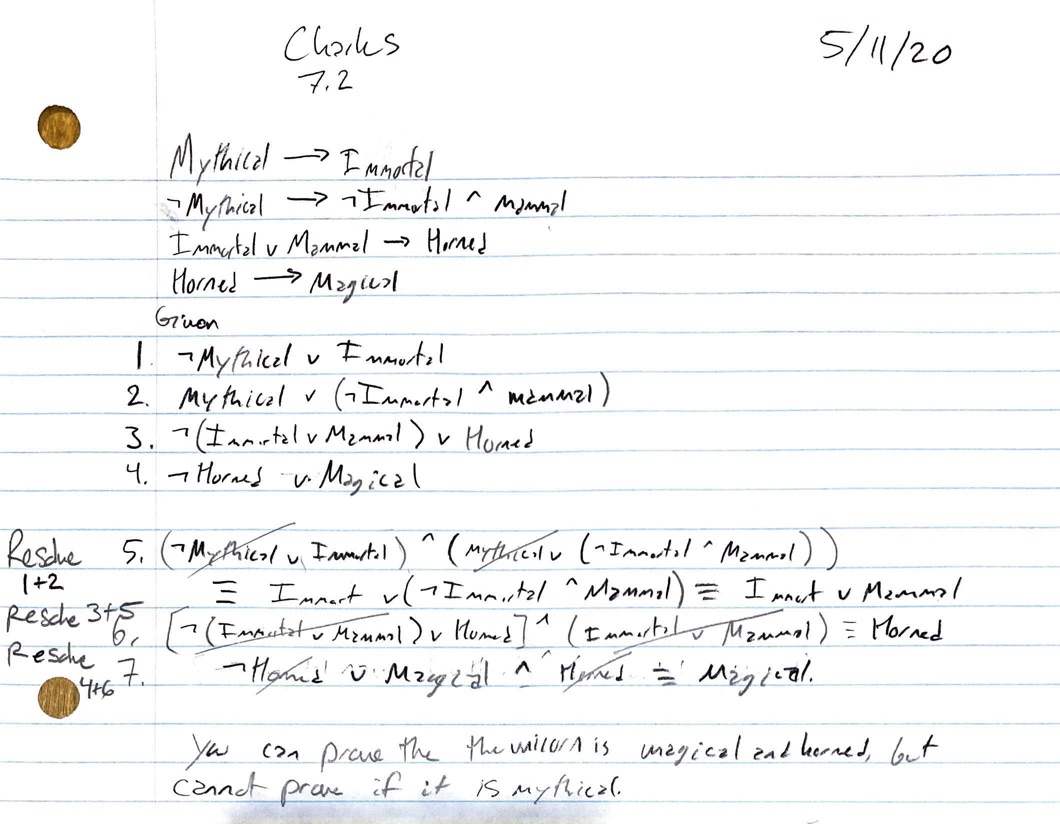 Charles 5/11/20
7.2
Mythical → Immortal
¬Mythical → ¬Immortal ^ Mammal
Immortal v Mammal → Horned
Horned → Magical
Given
1. ¬Mythical v Immortal
2. Mythical v (¬Immortal ^ mammal)
3. ¬(Immortal v Mammal) v Horned
4. ¬Horned v Magical
Resolve 1+2 5. (¬Mythical v Immortal) ^ (mythical v (¬Immortal ^ Mammal))
≡ Immort v (¬Immortal ^ Mammal) ≡ Immort v Mammal
Resolve 3+5 6. [¬(Immortal v Mammal) v Horned] ^ (Immortal v Mammal) ≡ Horned
Resolve 4+6 7. ¬Horned v Magical ^ Horned ≡ Magical.
You can prove the the unicorn is magical and horned, but
cannot prove if it is mythical.